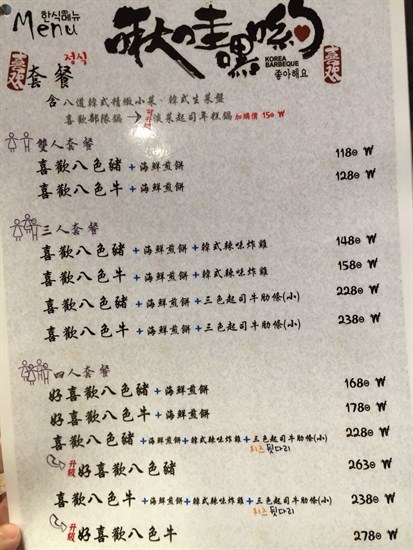 한식메뉴
Menu
啾哇嘿喲
KOREA
BARBEQUE
좋아해요
喜歡
喜歡
정식
套餐
含 八道韓式精緻小菜、韓式生菜盤
喜歡部隊鍋 → 可升級 淡菜起司年糕鍋 加購價 150 ₩
雙人套餐
喜歡八色豬 + 海鮮煎餅 1180 ₩
喜歡八色牛 + 海鮮煎餅 1280 ₩
三人套餐
喜歡八色豬 + 海鮮煎餅 + 韓式辣味炸雞 1480 ₩
喜歡八色牛 + 海鮮煎餅 + 韓式辣味炸雞 1580 ₩
喜歡八色豬 + 海鮮煎餅 + 三色起司牛肋條(小) 2280 ₩
喜歡八色牛 + 海鮮煎餅 + 三色起司牛肋條(小) 2380 ₩
四人套餐
好喜歡八色豬 + 海鮮煎餅 1680 ₩
好喜歡八色牛 + 海鮮煎餅 1780 ₩
喜歡八色豬 + 海鮮煎餅 + 韓式辣味炸雞 + 三色起司牛肋條(小) 2280 ₩
치즈 뒷다리
升級 好喜歡八色豬 2630 ₩
喜歡八色牛 + 海鮮煎餅 + 韓式辣味炸雞 + 三色起司牛肋條(小) 2380 ₩
치즈 뒷다리
升級 好喜歡八色牛 2780 ₩